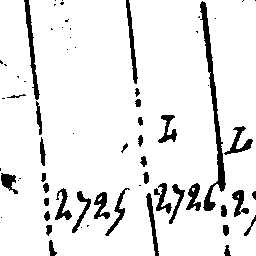 L L
2725 2726 27